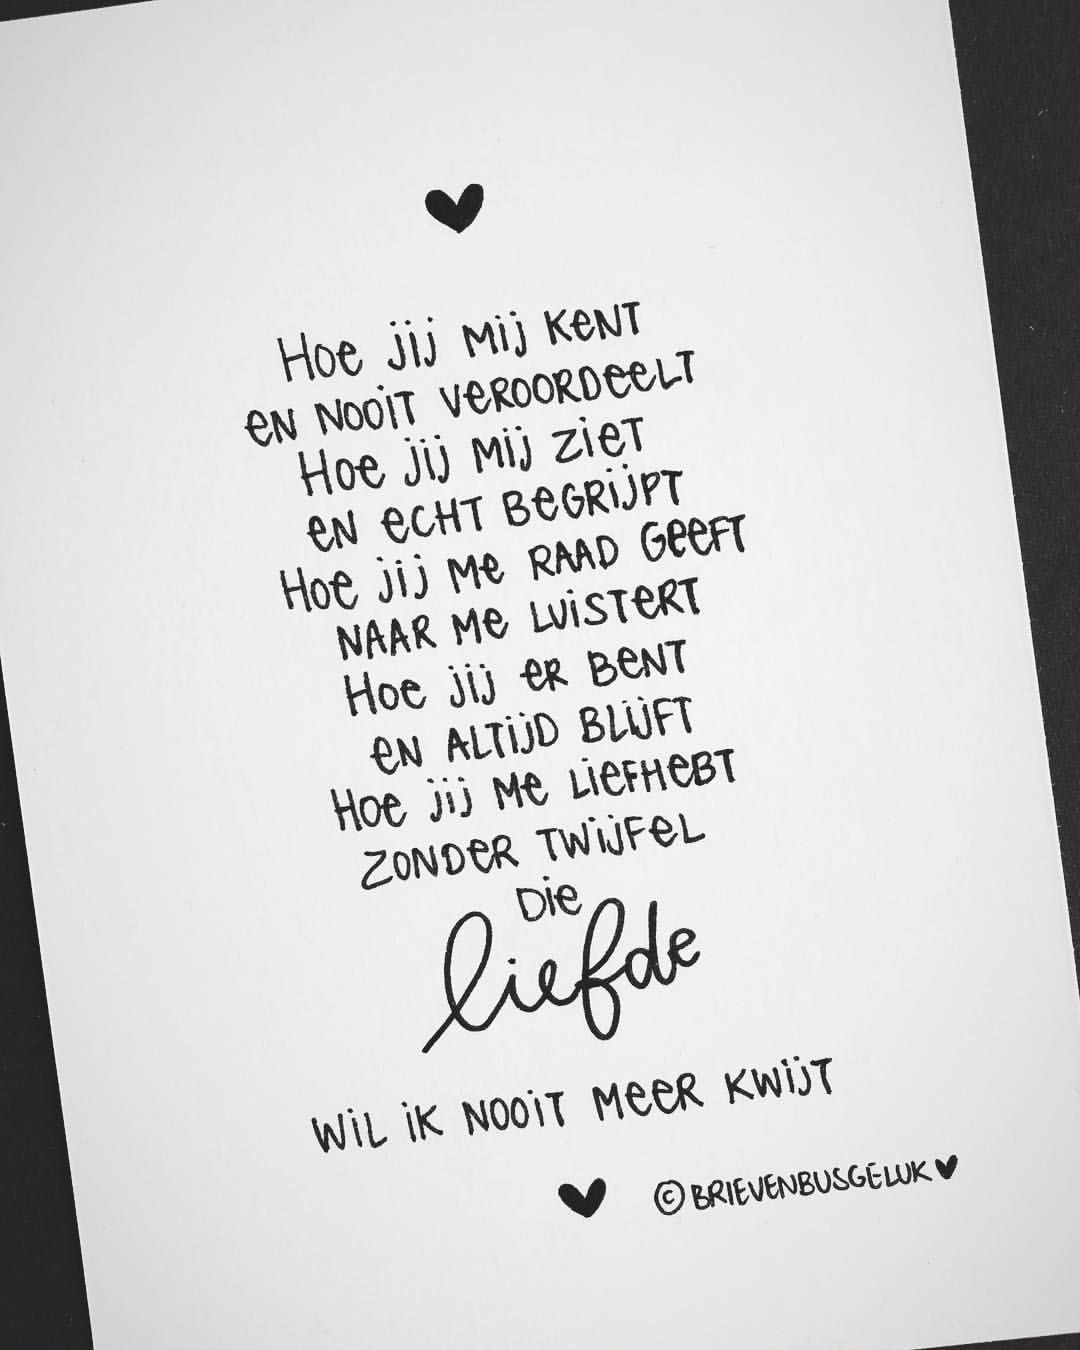 Hoe jij mij kent
en nooit veroordeelt
Hoe jij mij ziet
en echt begrijpt
Hoe jij me raad geeft
naar me luistert
Hoe jij er bent
en altijd blijft
Hoe jij me liefhebt
zonder twijfel
Die
liefde
wil ik nooit meer kwijt
© BRIEVENBUSGELUK